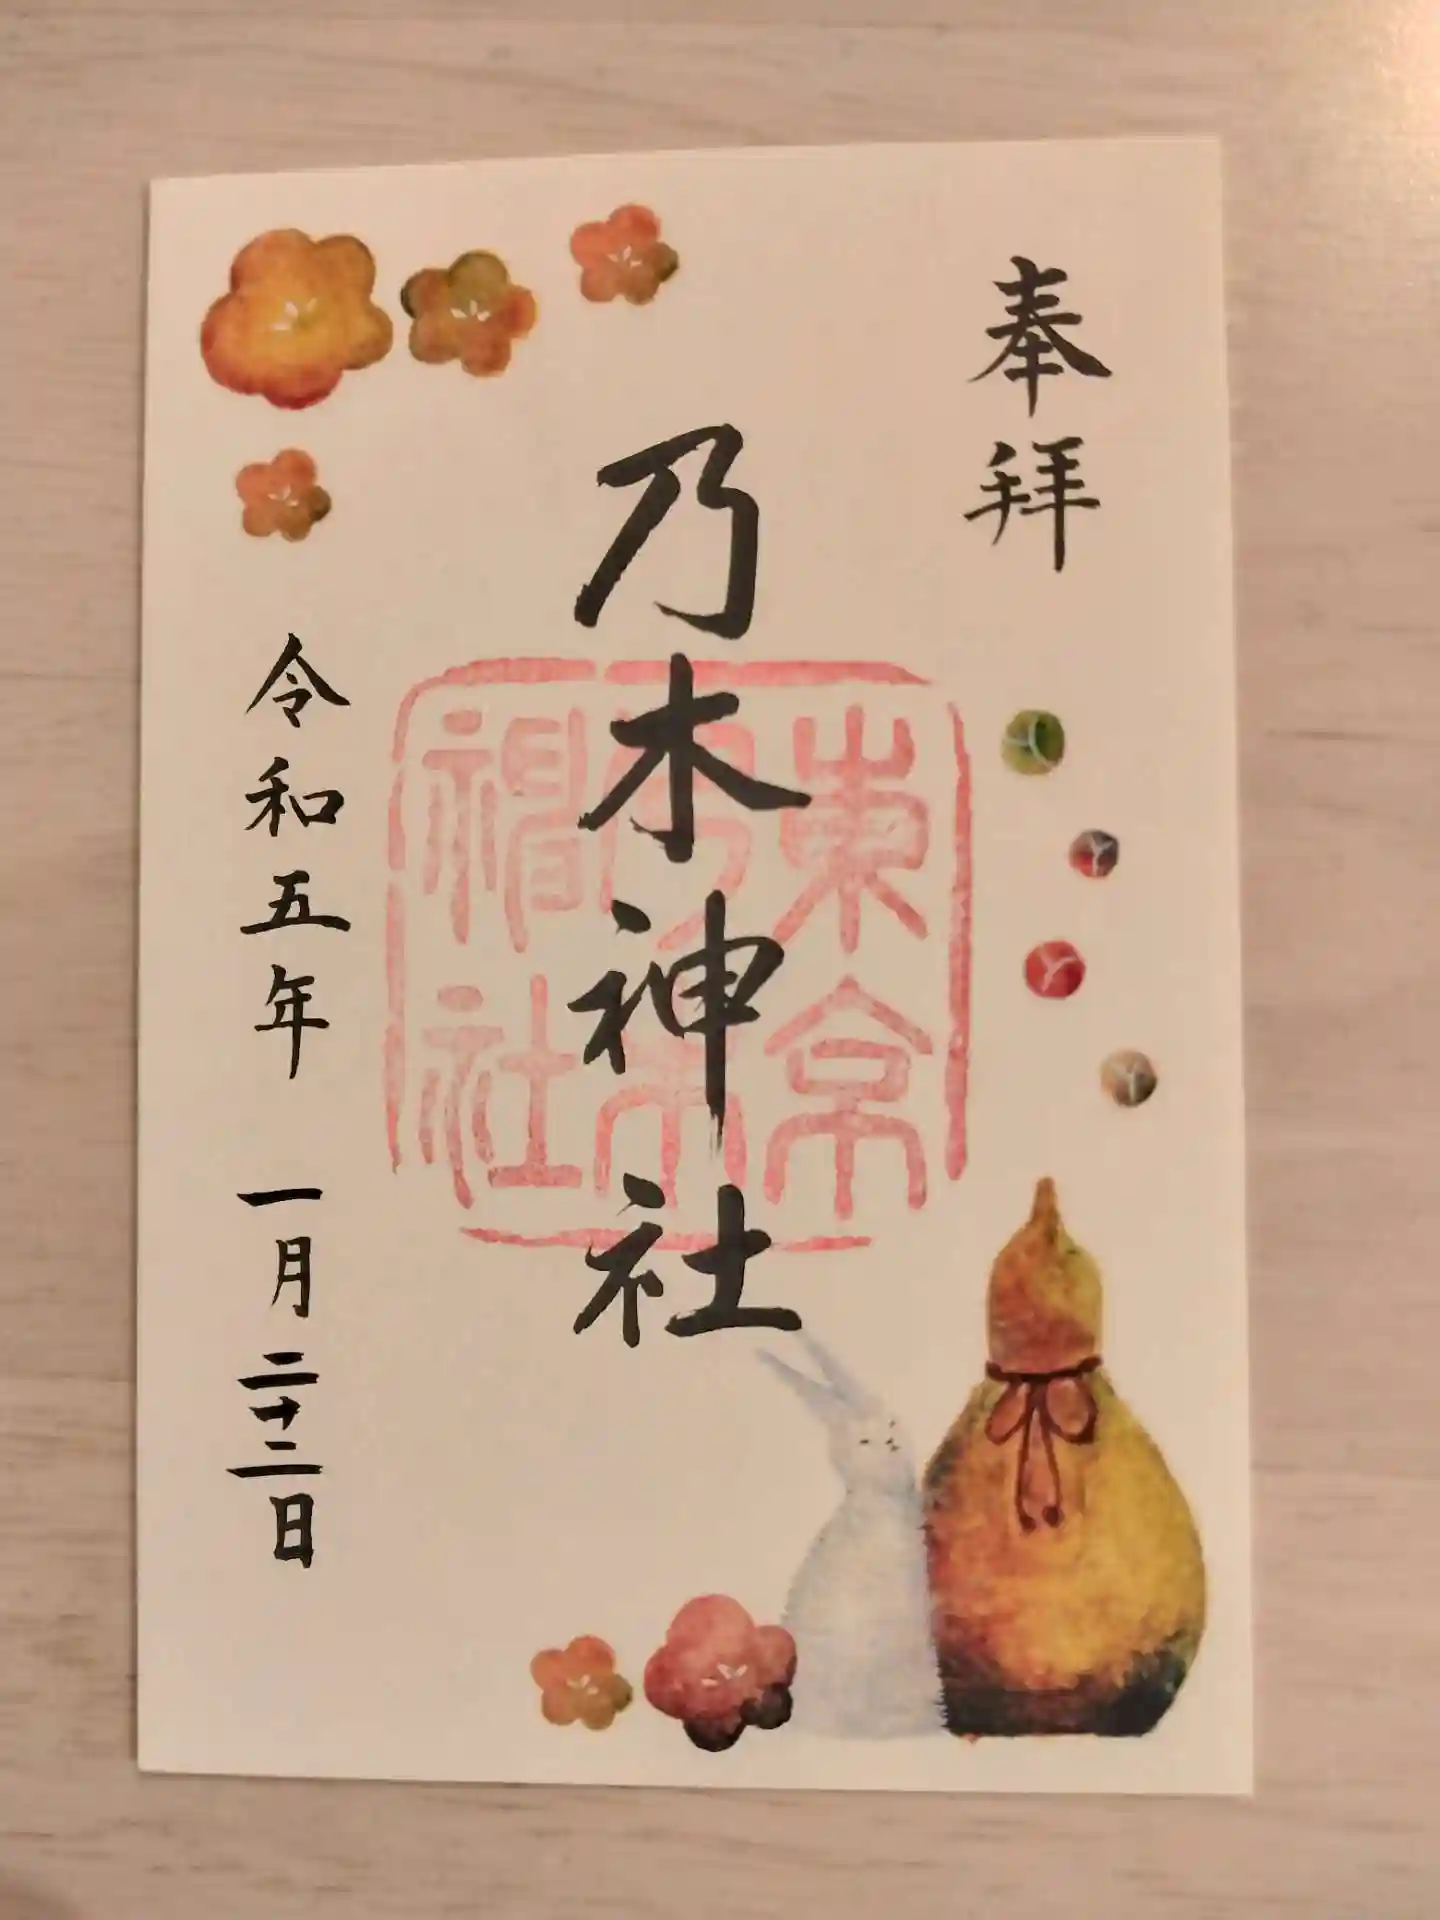 奉拝
乃木神社
東京
乃木
神社
令和五年 一月二十二日